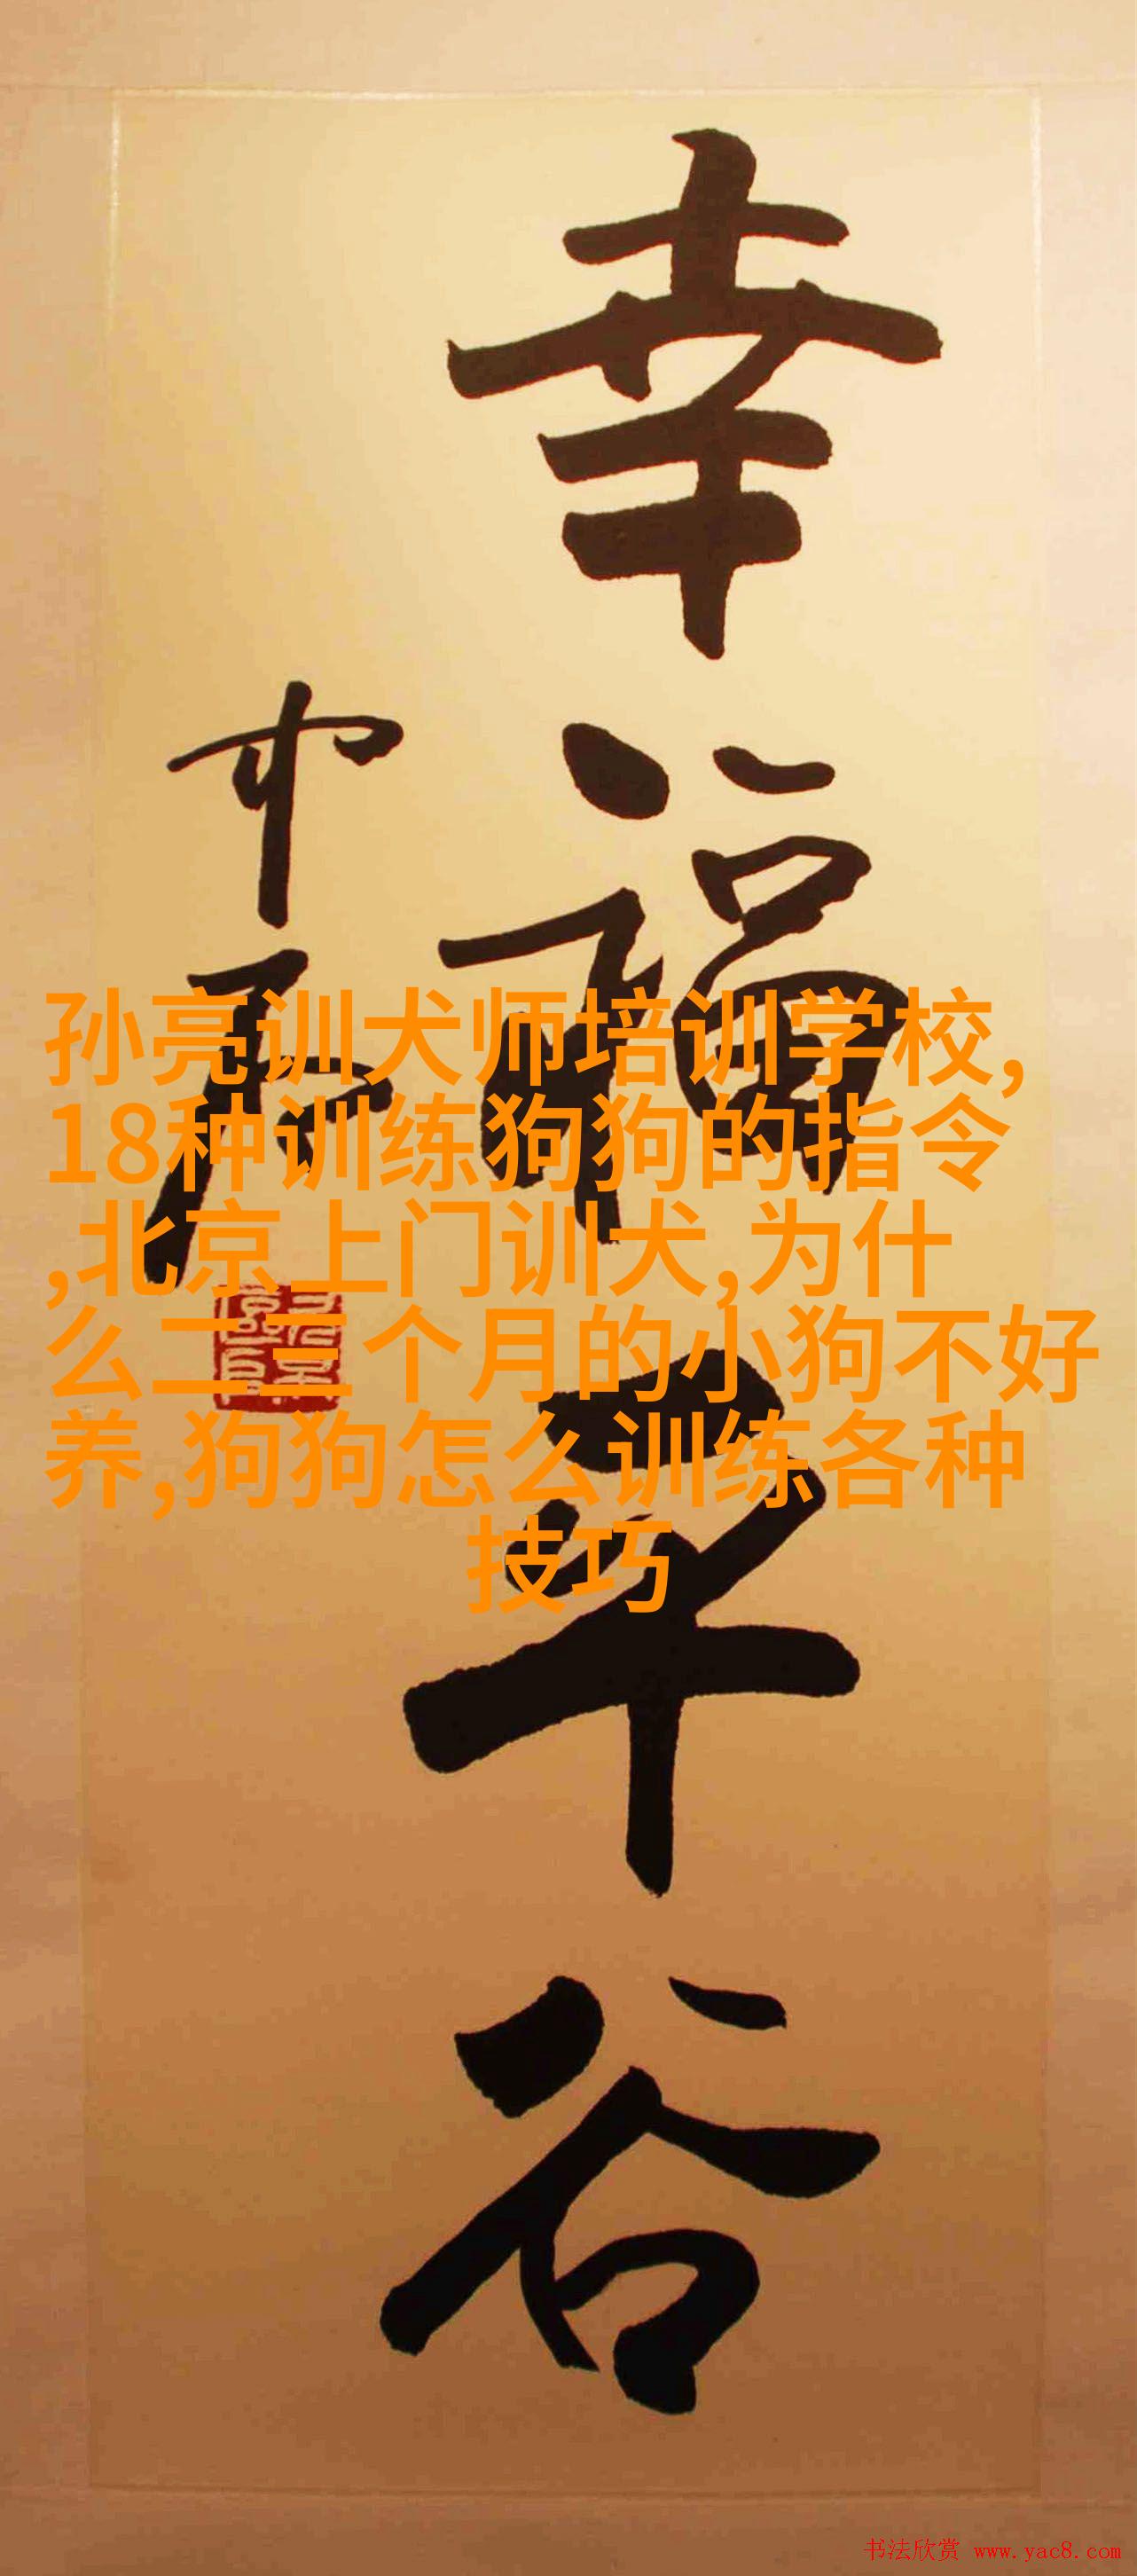 幸福平谷
孙亮训犬师培训学校,
18种训练狗狗的指令
,北京上门训犬,为什
么二三个月的小狗不好
养,狗狗怎么训练各种
技巧
书法欣赏 www.yac8.com